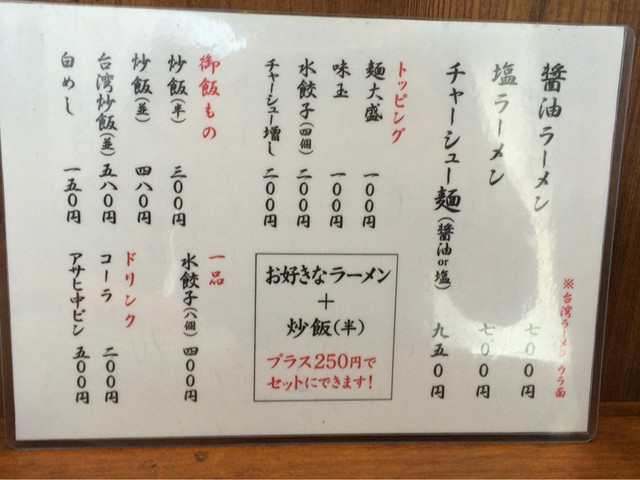 醤油ラーメン 七〇〇円
塩ラーメン 七〇〇円
チャーシュー麺(醤油or塩) 九五〇円
※台湾ラーメン ウラ面
トッピング
麺大盛 一〇〇円
味玉 一〇〇円
水餃子(四個) 二〇〇円
チャーシュー増し 二〇〇円
御飯もの
炒飯(半) 三〇〇円
炒飯(並) 四八〇円
台湾炒飯(並) 五八〇円
白めし 一五〇円
お好きなラーメン
+
炒飯(半)
プラス250円で
セットにできます!
一品
水餃子(八個) 四〇〇円
ドリンク
コーラ 二〇〇円
アサヒ中ビン 五〇〇円